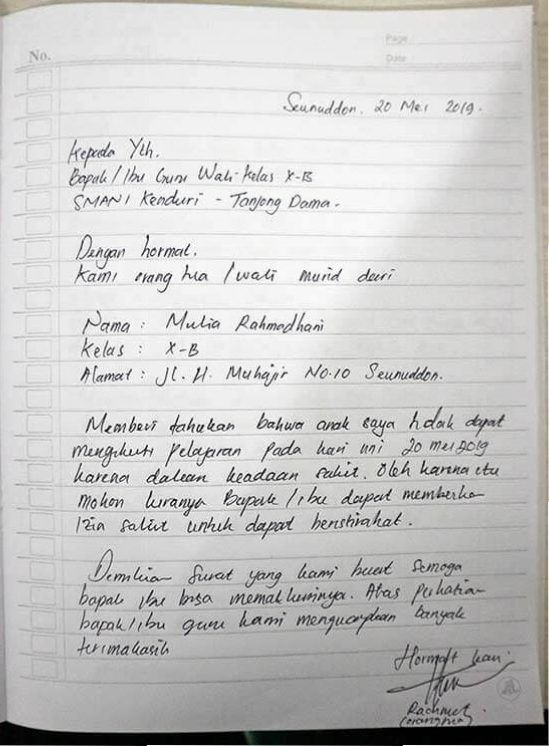 No.
Page
Date
Seunuddon, 20 Mei 2019.
Kepada Yth.
Bapak / Ibu Guru Wali Kelas X-B
SMAN 1 Kenduri - Tanjong Dama.
Dengan hormat.
Kami orang tua / wali murid dari
Nama : Mulia Rahmadhani
Kelas : X-B
Alamat : Jl. H. Muhajir No.10 Seunuddon.
Memberi tahukan bahwa anak saya tidak dapat
mengikuti pelajaran pada hari ini 20 mei 2019
karena dalam keadaan sakit. Oleh karena itu
mohon kiranya Bapak / ibu dapat memberika
Izin sakit untuk dapat beristirahat.
Demikian Surat yang kami buat Semoga
bapak ibu bisa memakluminya. Atas Perhatian
bapak / ibu guru kami mengucapkan banyak
terimakasih
Hormat kami
Rachmat
(orang tua)